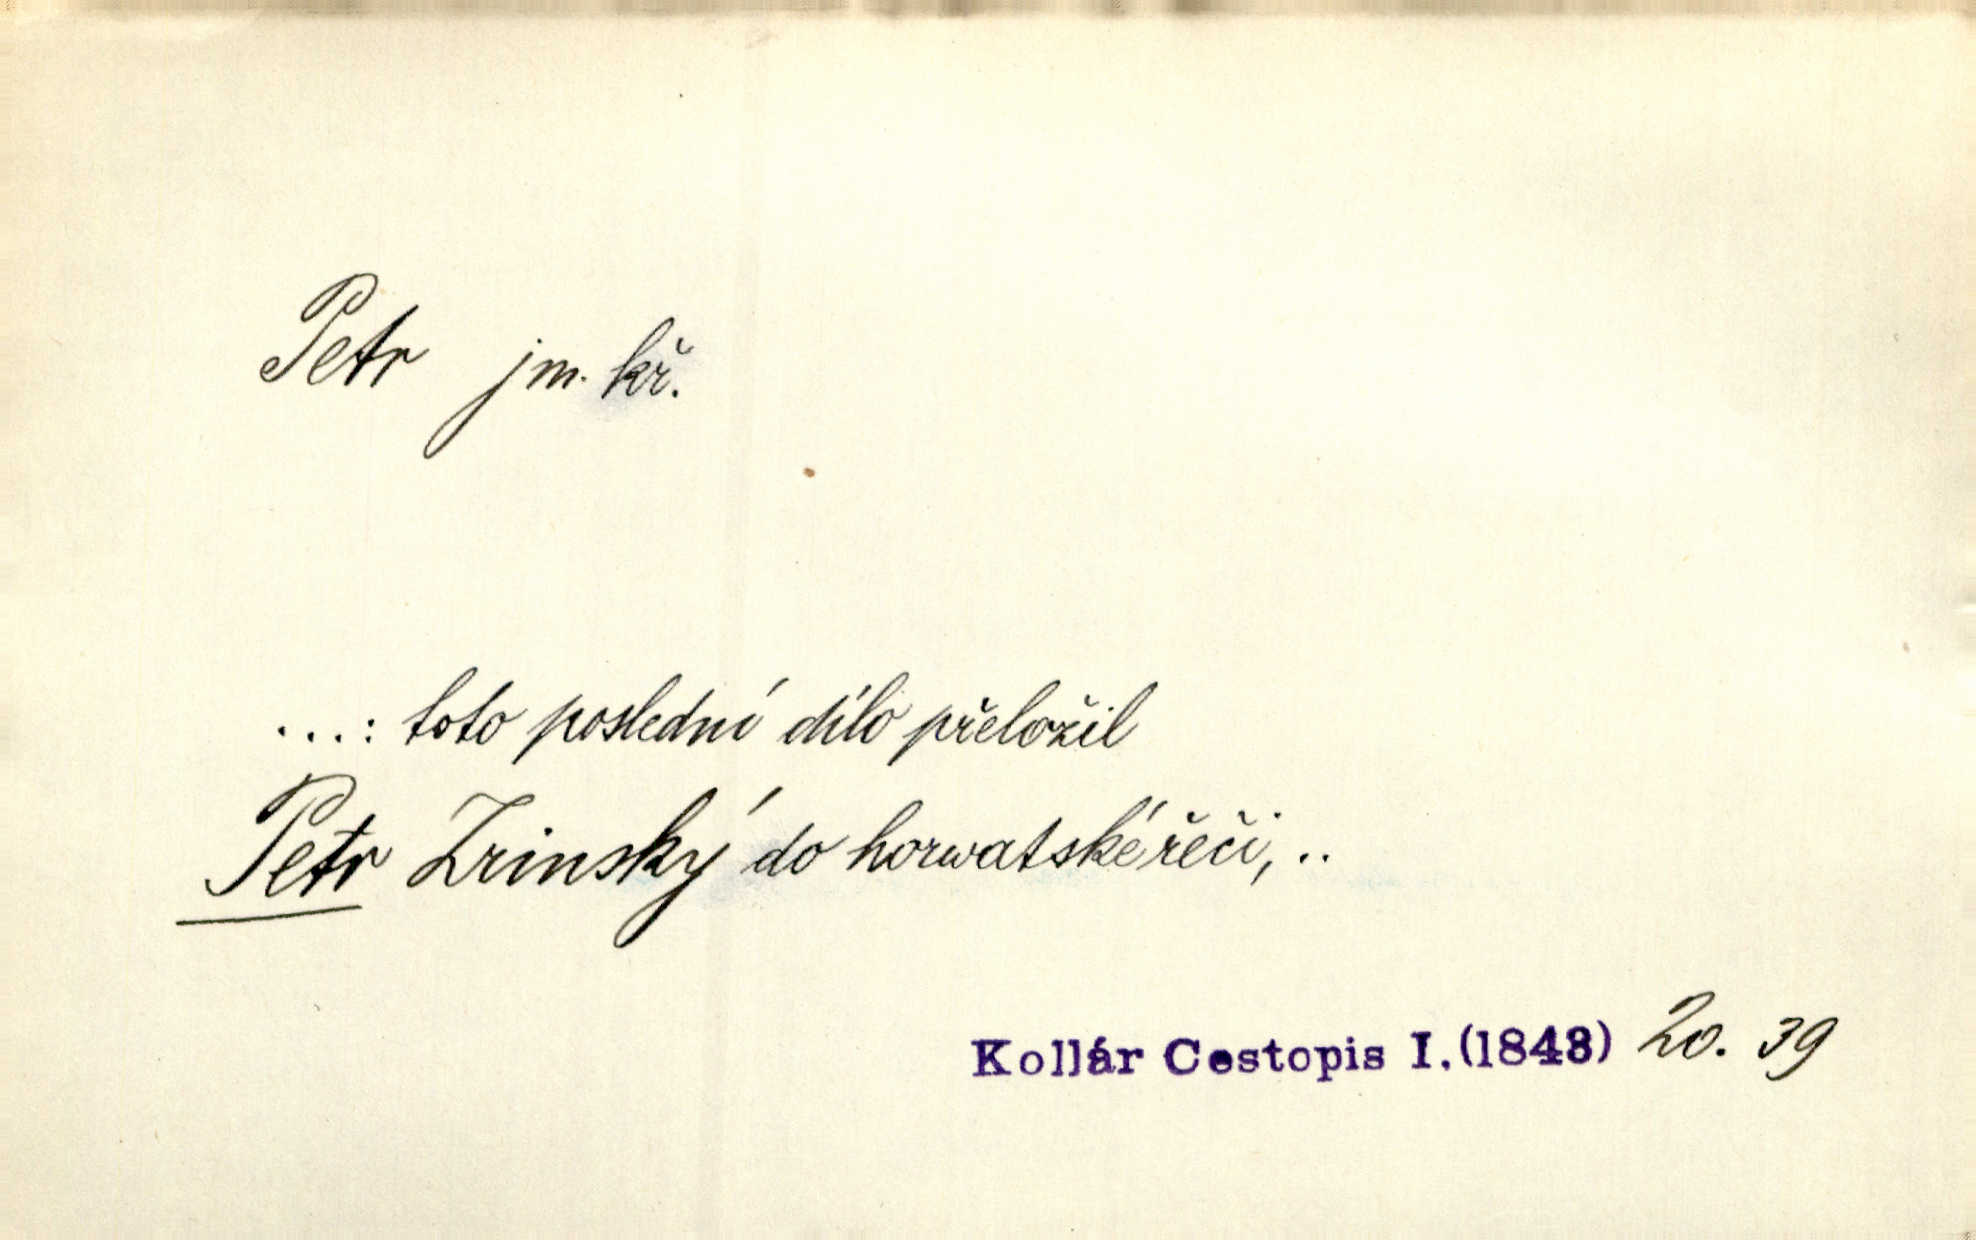 Petr jm. kř.
...: toto poslední dílo přeložil
Petr Zrinský do horwatské řeči, ..
Kollár Cestopis I.(1843) 20. 39